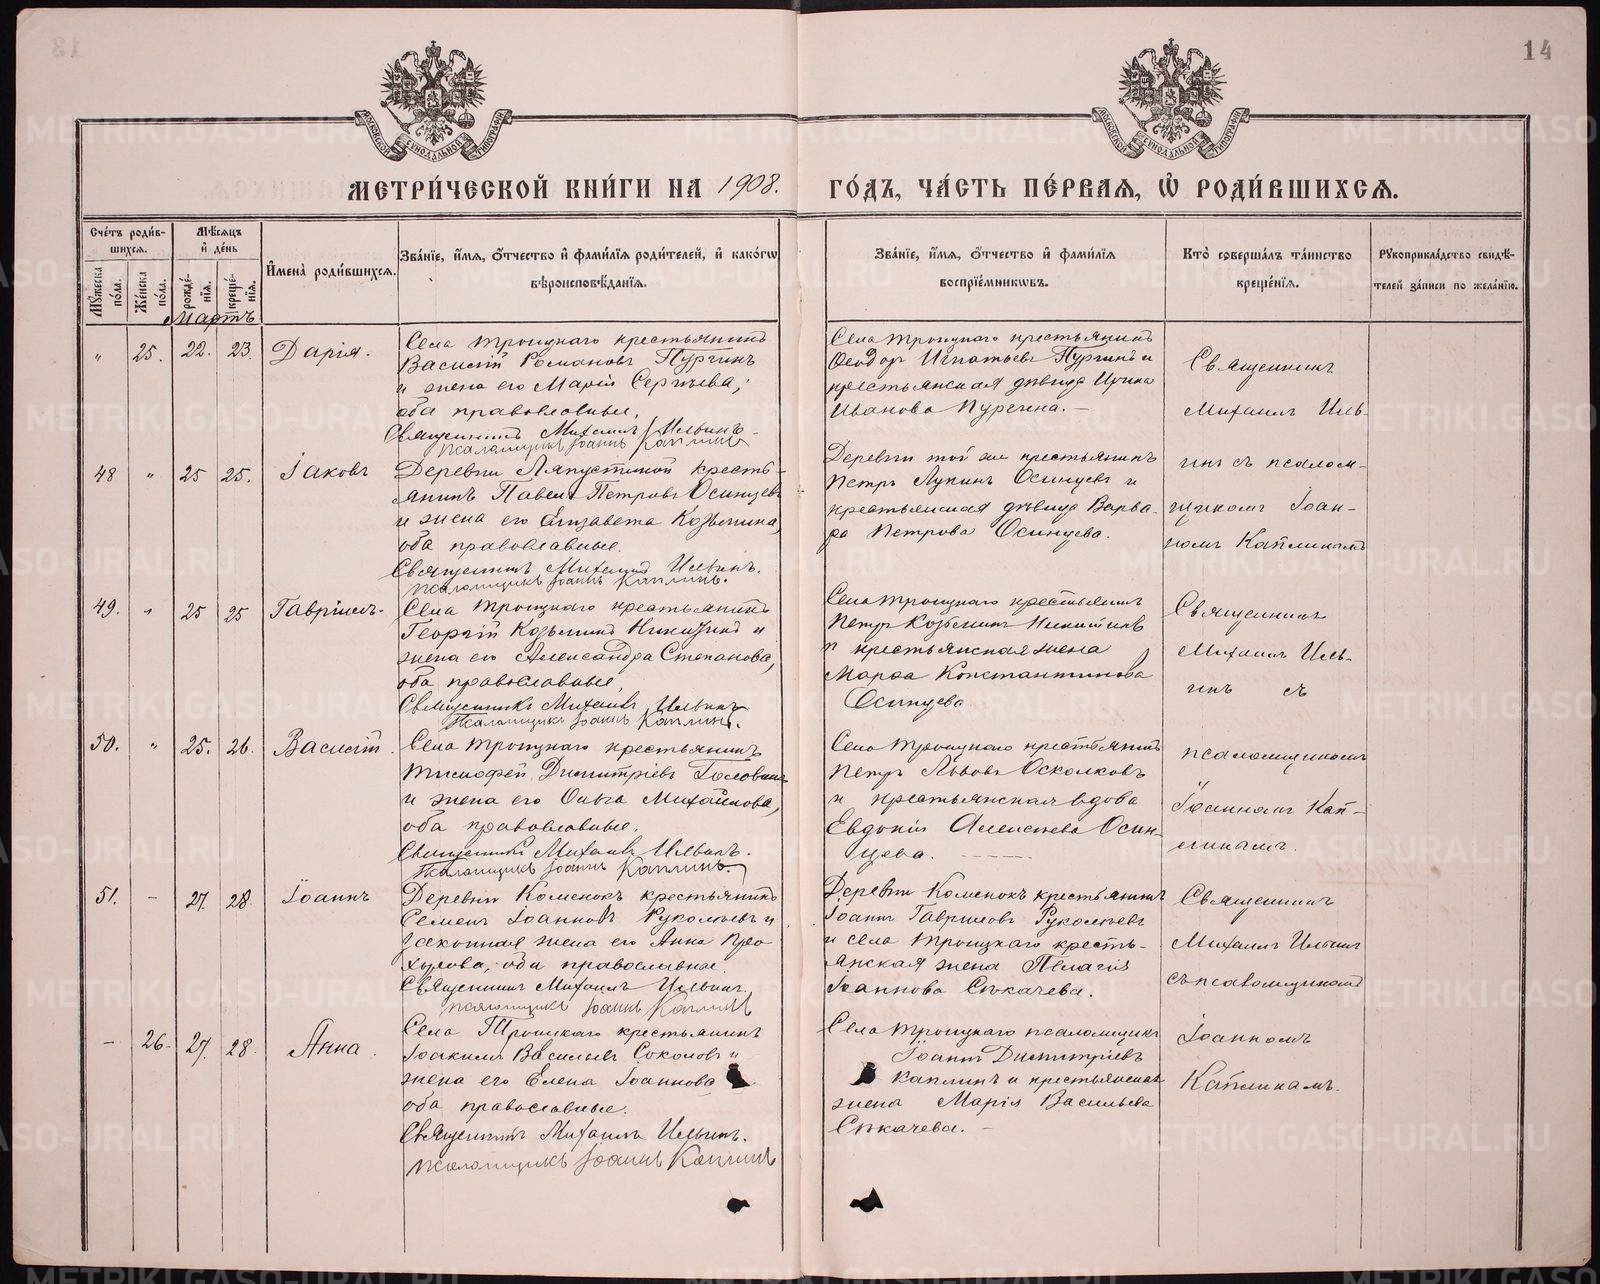 14
МЕТРИ́ЧЕСКОЙ КНИ́ГИ НА 1908.
ГО́ДЪ, ЧА́СТЬ ПЕ́РВАѦ, Ѽ РОДИ́ВШИХСѦ.
Сче́тъ роди́в-
шихсѧ.
Мꙋ́жеска по́ла.
Же́нска по́ла.
Мѣ́сѧцъ
и҆ де́нь
рожде́-
нїѧ.
креще́-
нїѧ.
И҆мена̀ роди́вшихсѧ.
Зва́нїе, и҆́мѧ, ѻ҆́тчество и҆ фами́лїѧ роди́телей, и҆ како́гѡ
вѣроисповѣ́данїѧ.
Зва́нїе, и҆́мѧ, ѻ҆́тчество и҆ фами́лїѧ
воспрїе́мникѡвъ.
Кто̀ соверша́лъ та́инство
креще́нїѧ.
Рꙋкоприкла́дство свидѣ́-
телей за́писи по жела́нїю.
Мартъ
" 25. 22. 23. Дарія.
Села Троицкаго крестьянинъ
Василій Романовъ Пургинъ
и жена его Марія Сергѣева,
оба православные.
Священникъ Михаилъ Ильинъ.
Псаломщикъ Іоаннъ Каплинъ
Ѳеодоръ Игнатьевъ Пургинъ и
крестьянская дѣвица Ирина
Иванова Пургина. —
Священникъ
Михаилъ Иль-
инъ съ псалом-
щикомъ Іоан-
номъ Каплинымъ
48 " 25 25. Іаковъ
Деревни Ляпустиной кресть-
янинъ Павелъ Петровъ Осинцевъ
и жена его Елизавета Козьмина,
оба православные.
Священникъ Михаилъ Ильинъ.
Псаломщикъ Іоаннъ Каплинъ.
Деревни той же крестьянинъ
Петръ Лупинъ Осинцевъ и
крестьянская дѣвица Варва-
ра Петрова Осинцева.
49. " 25 25 Гавріилъ.
Села Троицкаго крестьянинъ
Георгій Козьминъ и
жена его Александра Степанова,
оба православные,
Священникъ Михаилъ Ильинъ
Псаломщикъ Іоаннъ Каплинъ.
Села Троицкаго крестьянинъ
Петръ Козьминъ
и крестьянская жена
Марѳа Константинова
Осинцева
Священникъ
Михаилъ Иль-
инъ съ
псаломщикомъ
Іоанномъ Кап-
линымъ.
50. " 25. 26. Василій
Села Троицкаго крестьянинъ
Тимофей Димитріевъ
и жена его Ольга Михайлова,
оба православные.
Священникъ Михаилъ Ильинъ.
Псаломщикъ Іоаннъ Каплинъ.
Села Троицкаго крестьянинъ
Петръ Львовъ Осколковъ
и крестьянская вдова
Евдокія Алексѣева Осин-
цева.
51. - 27. 28. Іоаннъ
Деревни Каменокъ крестьянинъ
Семенъ Іоанновъ Руколѣевъ и
законная жена его Анна Про-
хорова, оба православные.
Священникъ Михаилъ Ильинъ.
Псаломщикъ Іоаннъ Каплинъ
Деревни Каменокъ крестьянинъ
Іоаннъ Гавриловъ Руколѣевъ
и села Троицкаго кресть-
янская жена Пелагія
Іоаннова Сѣкачева.
Священникъ
Михаилъ Ильинъ
съ псаломщикомъ
Іоанномъ
Каплинымъ.
- 26. 27. 28. Анна.
Села Троицкаго крестьянинъ
Іоакимъ Васильевъ Соколовъ и
жена его Елена Іоаннова
оба православные.
Священникъ Михаилъ Ильинъ.
Псаломщикъ Іоаннъ Каплинъ
Села Троицкаго псаломщикъ
Іоаннъ Димитріевъ
Каплинъ и крестьянская
жена Марія Васильева
Сѣкачева. —